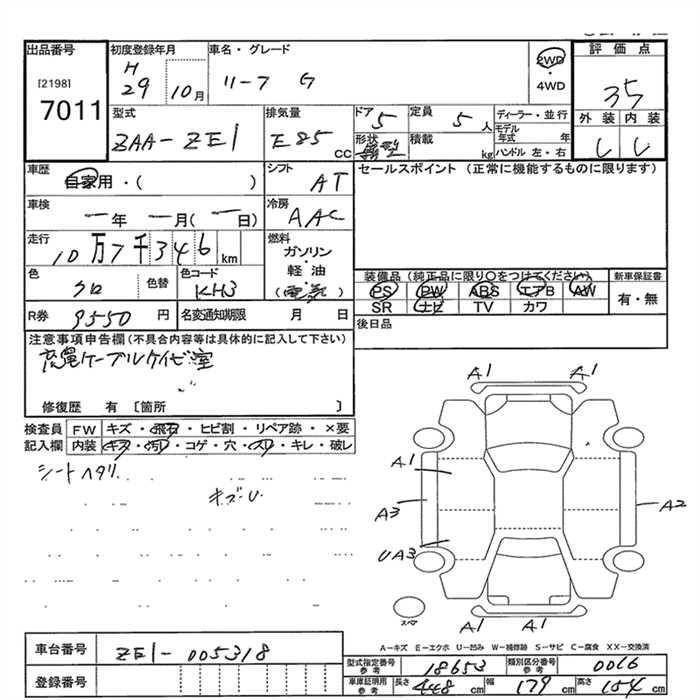 出品番号
[2198]
7011
初度登録年月
H
29 10月
車名・グレード
リーフ G
2WD
・
4WD
評価点
3.5
外装 内装
型式
ZAA-ZE1
排気量
E85 cc
ドア 5
定員 5 人
形状 箱型
積載 kg
ディーラー・並行
モデル年式 年
ハンドル 左・右
車歴
自家用・( )
シフト
AT
車検
一年 一月(一日)
冷房
AAC
走行
10万7千346km
燃料
ガソリン
・
軽油
・
(電気)
セールスポイント (正常に機能するものに限ります)
色
クロ
色替
色コード
KH3
装備品 (純正品に限り○をつけてください)
PS PW ABS エアB AW
SR ナビ TV カワ
新車保証書
有・無
R券 9550円
名変通知期限 月 日
後日品
注意事項申告欄(不具合内容等は具体的に記入して下さい)
充電ケーブルケイビ室
修復歴 有 [箇所 ]
検査員
記入欄
FW キズ・飛石・ヒビ割・リペア跡・×要
内装 キズ・汚れ・コゲ・穴・スリ・キレ・破レ
シートヘタリ
キズ・U
A1 A1
A1
A3 A2
UA3
A1 A1
スペア
A-キズ E-エクボ U-凹み W-補修跡 S-サビ C-腐食 XX-交換済
車台番号
ZE1-005318
登録番号
型式指定番号参考 18653
類別区分番号参考 0016
車庫証明用参考 長さ 448 cm 幅 179 cm 高さ 154 cm